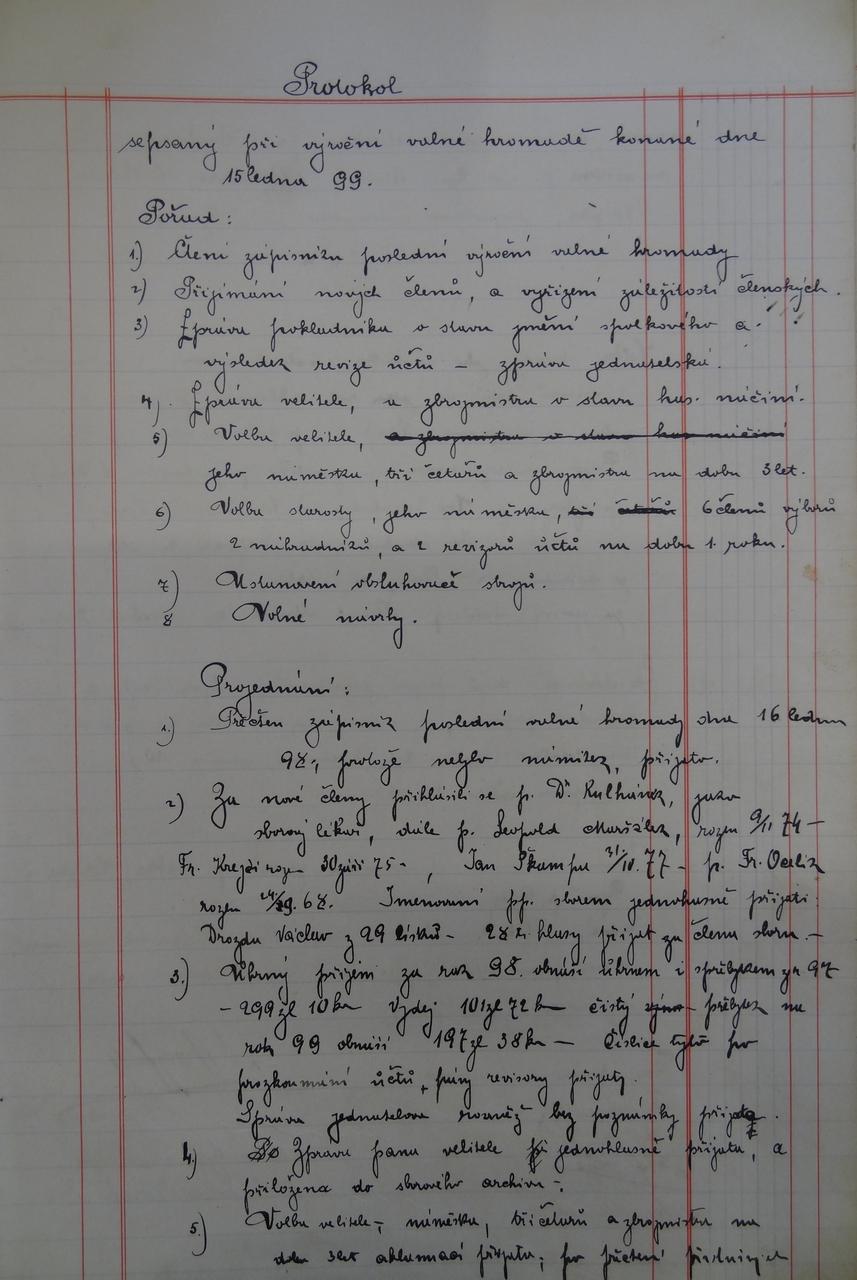 Protokol
sepsaný při výroční valné hromadě konané dne
15 ledna 99.
Pořad:
1.) Čtení zápisníku poslední výroční valné hromady
2) Přijímání nových členů, a vyřízení záležitostí členských.
3) Zpráva pokladníka o stavu jmění spolkového a
výsledek revize účtů – zpráva jednatelská.
4) Zpráva velitele, a zbrojmistra o stavu has. náčiní.
5) Volba velitele, a zbrojmistra o stavu has náčiní
jeho náměstka, tří četařů a zbrojmistra na dobu 3 let.
6) Volba starosty, jeho náměska, tří četařů 6 členů výborů
2 náhradníků, a 2 revizorů účtů na dobu 1. roku.
7) Ustanovení obsluhovače strojů.
8 Volné návrhy.
Projednání:
1.) Přečten zápisník poslední valné hromady dne 16 ledna
98., nebylo námitek, přijato.
2) Za nové členy přihlásili se p. Dr. Kulhánek, jako
sborový lékař, dále p. Leopold Maršálek, rozen 9/11 74 –
Fr. Krejčí rozen 30 září 75 – , Jan Škampa 31/10. 77 – p. Fr.
rozen 68. Jmenovaní pp. sborem jednohlasně přijati.
Drozda Václav z 29 lísků – 28 hlasy přijat za člena sboru. –
3.) Úhrný příjem za rok 98. obnáší úhrnem i s přebytkem za 97
– 299 zl 10 kr Výdej 101 zl 72 kr – čistý přebytek na
rok 99 obnáší 197 zl 38 kr – Číslice tyto po
prozkoumání účtů, pány revisory přijaty.
Správa jednatelova rovněž bez poznámky přijata.
4.) Zpráva pana velitele jednohlasně přijata, a
přiložena do sborového archivu –.
5.) Volba velitele –, náměska, tří četařů a zbrojmistra na
dobu 3 let aklamací přijata; po přečtení